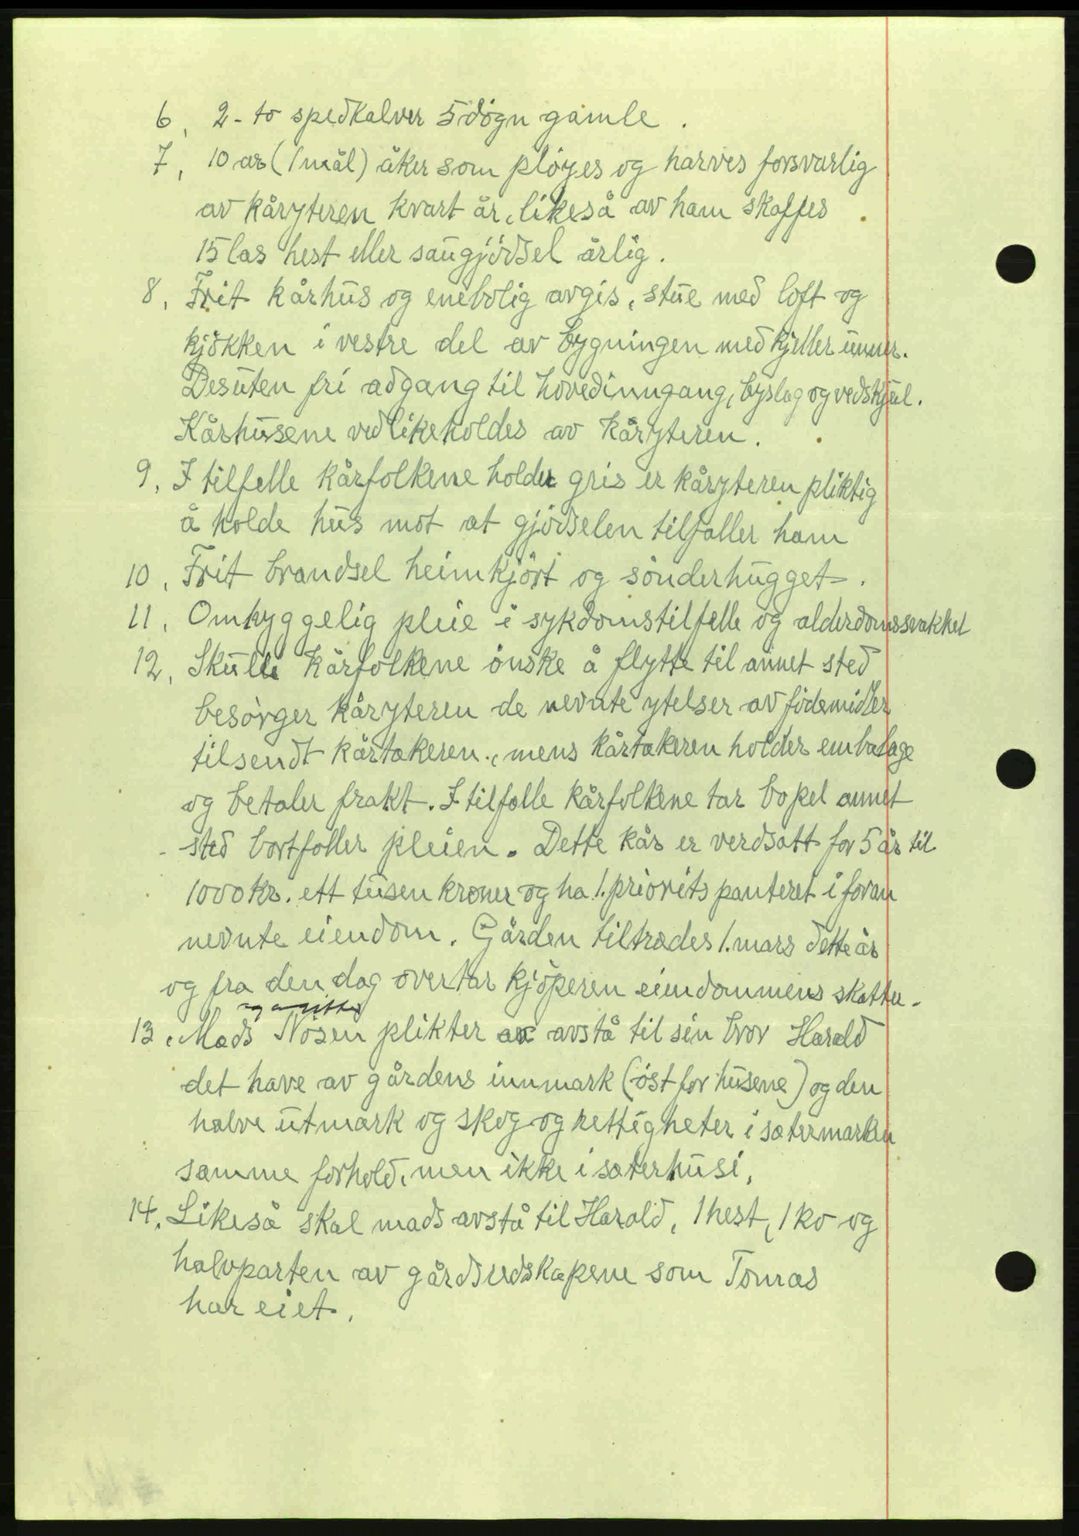 6, 2- to spedkalver 5 døgn gamle .
7, 10 ar (1 mål) åker som pløyes og harves forsvarlig
av kåryteren kvart år, likeså av ham skaffes
15 las hest eller saugjödsel årlig.
8, Frit kårhus og enebolig avgis, stue med loft og
kjökken i vestre del av bygningen med kjeller unner.
Desuten fri adgang til hovedinngang, byslag og vedskjul.
Kårhusene vedlikeholdes av kåryteren.
9, I tilfelle kårfolkene holder gris er kåryteren pliktig
å holde hus mot at gjödselen tilfaller ham
10, Frit brandsel heimkjört og sönderhugget.
11, Omhyggelig pleie i sykdomstilfelle og alderdomssvakhet
12, Skulle kårfolkene önske å flytte til annet sted
besörger kåryteren de nevnte ytelser av födemidler
tilsendt kårtakeren, mens kårtakeren holder embalage
og betaler frakt. I tilfalle kårfolkene tar bopel annet
sted bortfaller pleien. Dette kår er verdsatt for 5 år til
1000 kr. ett tusen kroner og ha 1. priorits panteret i foran
nevnte eiendom. Gården tiltrædes 1. mars dette år
og fra den dag overtar kjöperen eiendommens skatter
13, Mads Nosen plikter avstå til sin bror Harald
det have av gårdens innmark (öst for husene) og den
halve utmark og skog og rettigheter i sætermarken
samme forhold, men ikke i sæterhusi,
14, Likeså skal mads avstå til Harald, 1 hest, 1 ko og
halvparten av gårdsredskapene som Tomas
har eiet.